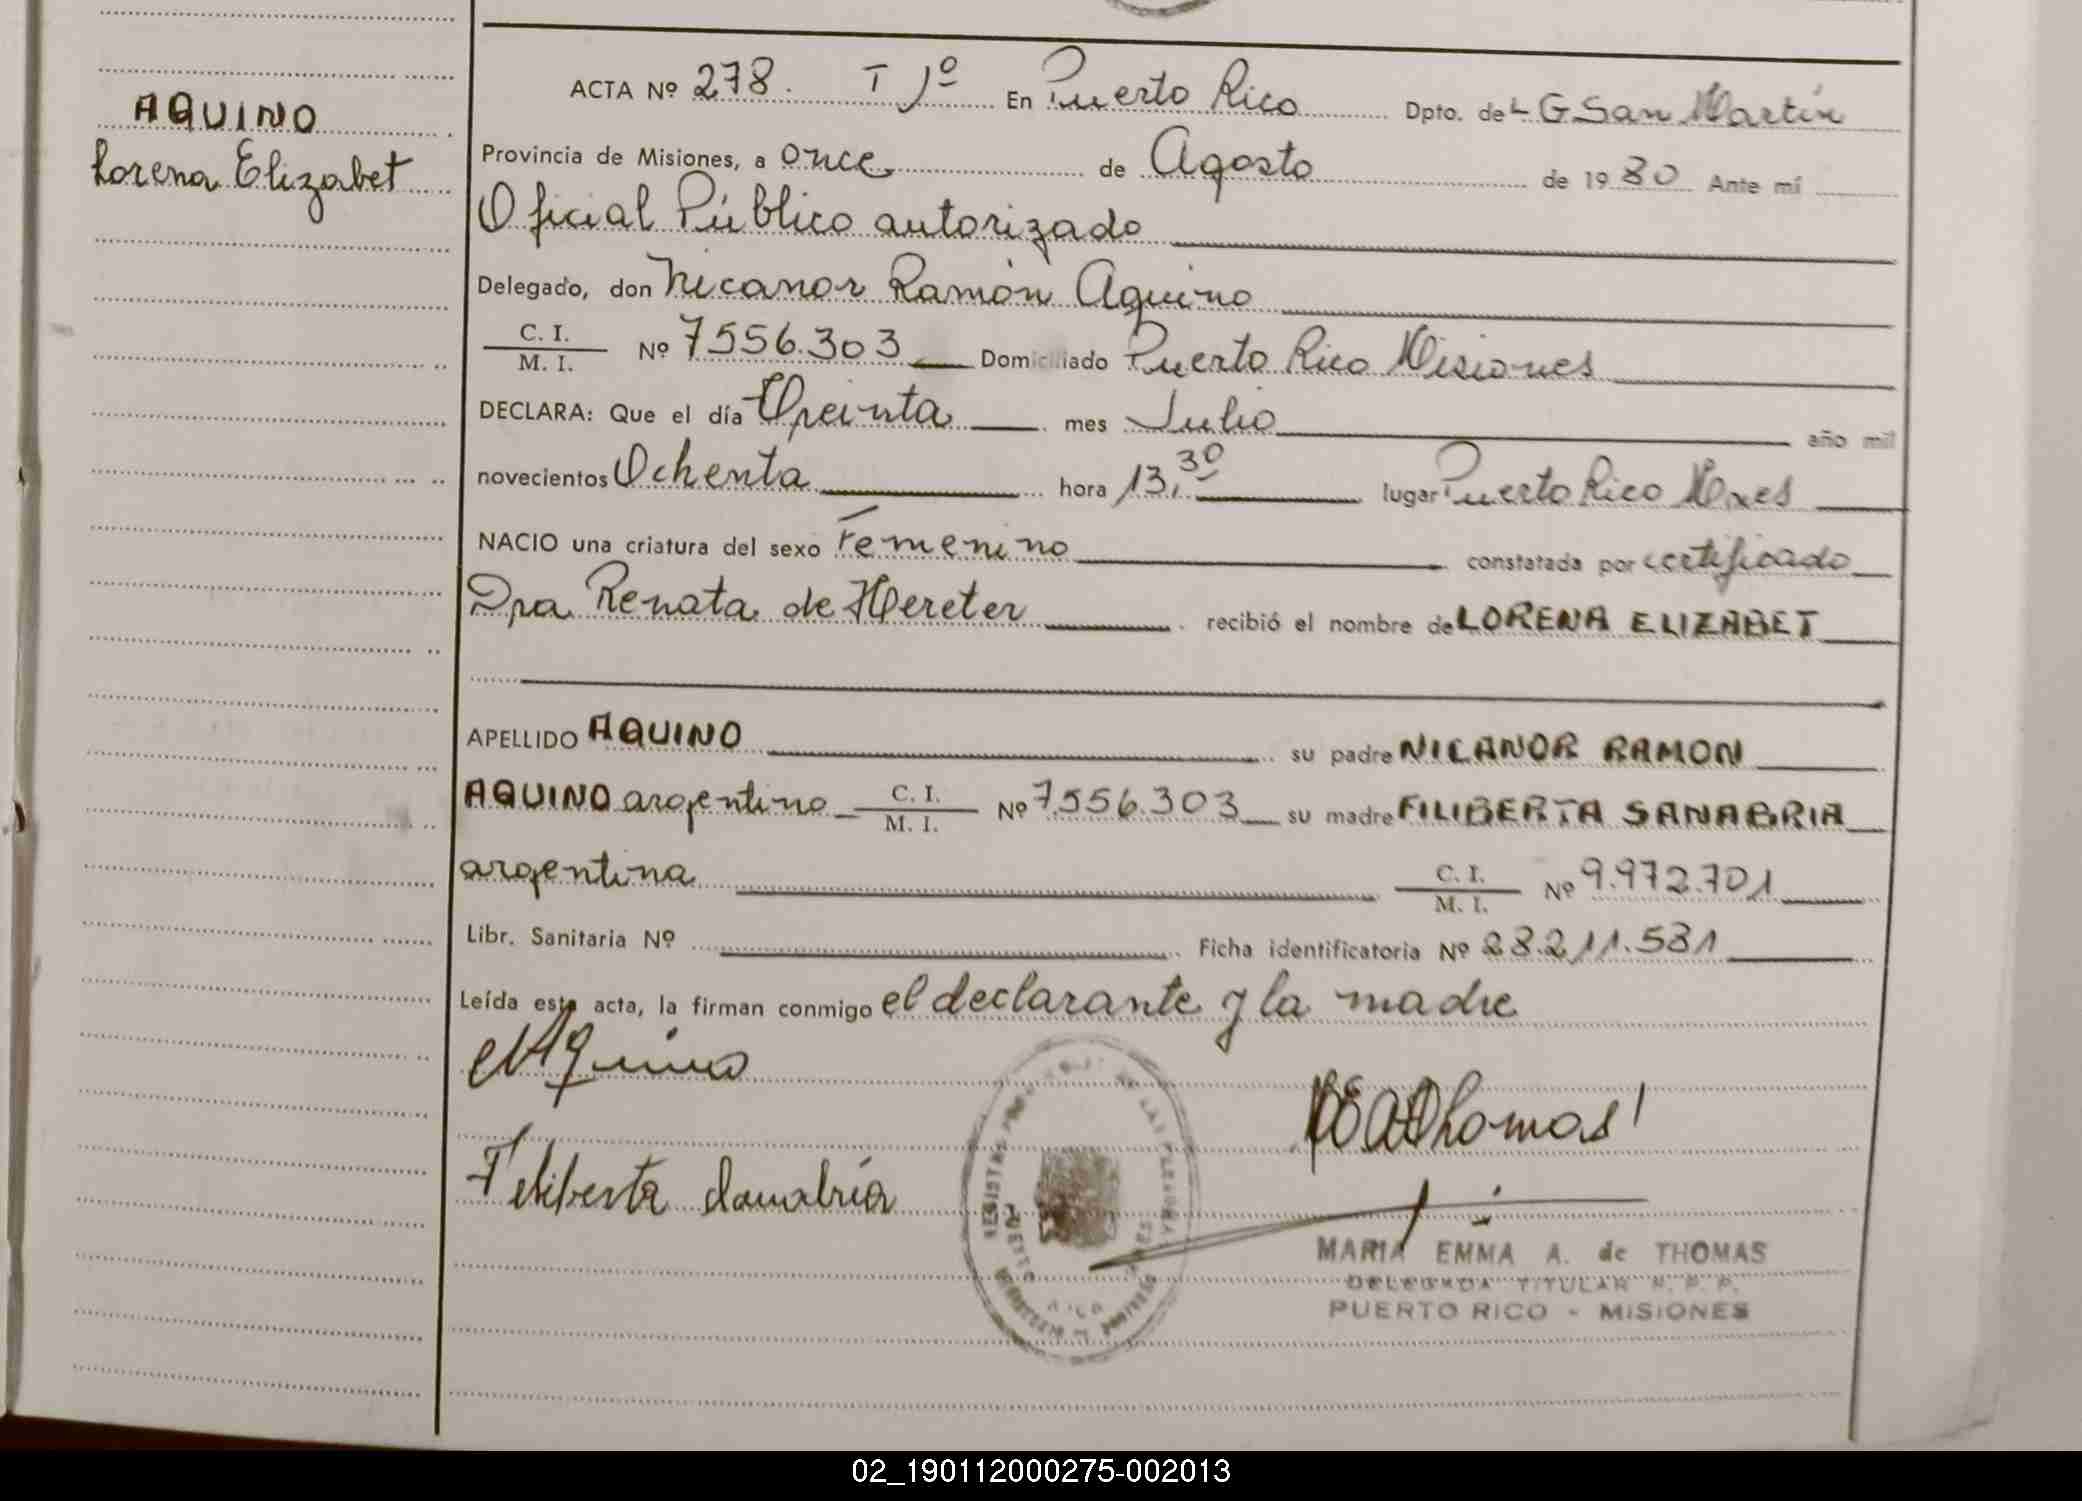 AQUINO
Lorena Elizabet
ACTA Nº 278. T 1º En Puerto Rico Dpto. de L G San Martín
Provincia de Misiones, a once de Agosto de 1980 Ante mí
Oficial Público autorizado
Delegado, don Nicanor Ramón Aquino
C. I.
M. I. Nº 7556.303 Domiciliado Puerto Rico Misiones
DECLARA: Que el día Treinta mes Julio año mil
novecientos Ochenta hora 13,30 lugar Puerto Rico Mnes
NACIO una criatura del sexo Femenino constatada por certificado
Dra Renata de Hereter recibió el nombre de LORENA ELIZABET
APELLIDO AQUINO su padre NICANOR RAMON
AQUINO argentino C. I. M. I. Nº 7.556.303 su madre FILIBERTA SANABRIA
argentina C. I. M. I. Nº 9.972.701
Libr. Sanitaria Nº Ficha identificatoria Nº 28.211.581
Leída esta acta, la firman conmigo el declarante y la madre
NAquino
MEAThomas
Filiberta Sanabria
REGISTRO DE LAS PERSONAS
PUERTO RICO
MARIA EMMA A. de THOMAS
DELEGADA TITULAR R. P. P.
PUERTO RICO - MISIONES
02_190112000275-002013